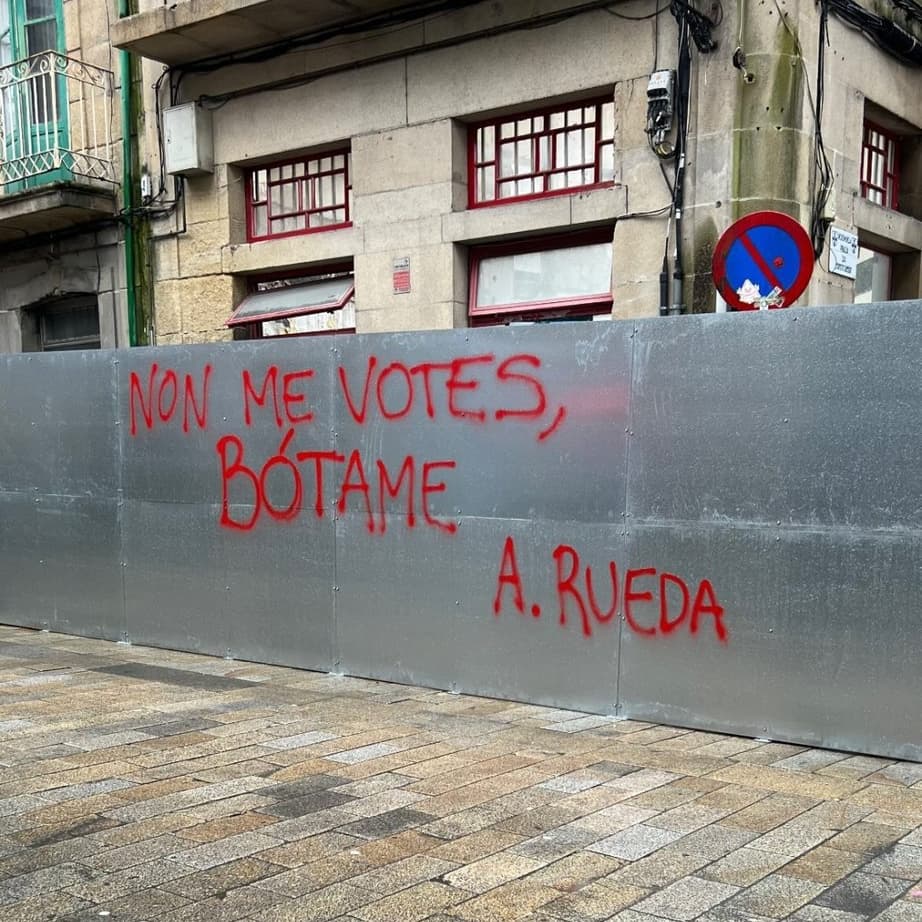 NON ME VOTES,
BÓTAME
A. RUEDA